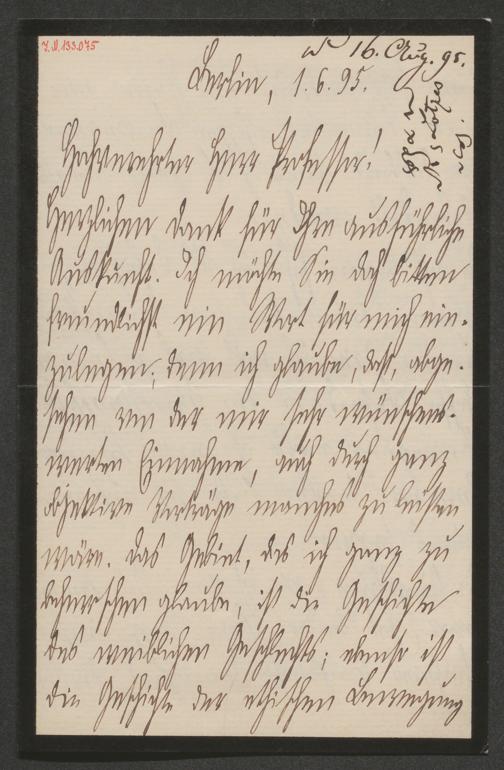 I.N. 133.075
16. Aug. 95.
Berlin, 1.6.95.
Hochverehrter Herr Professor!
Herzlichen Dank für Ihre ausführliche
Auskunft. Ich möchte Sie doch bitten
freundlichst ein Wort für mich ein-
zulegen, denn ich glaube, daß, abge-
sehen von der mir sehr wünschens-
werten Einnahme, auch durch ganz
objektive Vorträge manches zu leisten
wäre. Das Gebiet, das ich ganz zu
beherrschen glaube, ist die Geschichte
des weiblichen Geschlechts; ebenso ist
die Geschichte der ethischen Bewegung